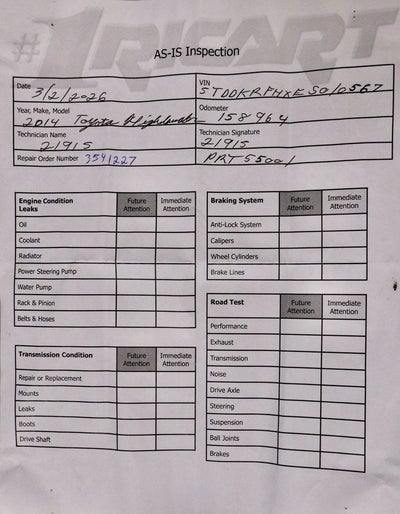 #1 RICART
AS-IS Inspection
Date 3/2/2026
VIN 5TDDKRFHXES010567
Year, Make, Model 2014 Toyota Highlander
Odometer 158964
Technician Name 21915
Technician Signature 21915
Repair Order Number 3541227
PRT55001
Engine Condition Leaks Future Attention Immediate Attention
Oil
Coolant
Radiator
Power Steering Pump
Water Pump
Rack & Pinion
Belts & Hoses
Transmission Condition Future Attention Immediate Attention
Repair or Replacement
Mounts
Leaks
Boots
Drive Shaft
Braking System Future Attention Immediate Attention
Anti-Lock System
Calipers
Wheel Cylinders
Brake Lines
Road Test Future Attention Immediate Attention
Performance
Exhaust
Transmission
Noise
Drive Axle
Steering
Suspension
Ball Joints
Brakes